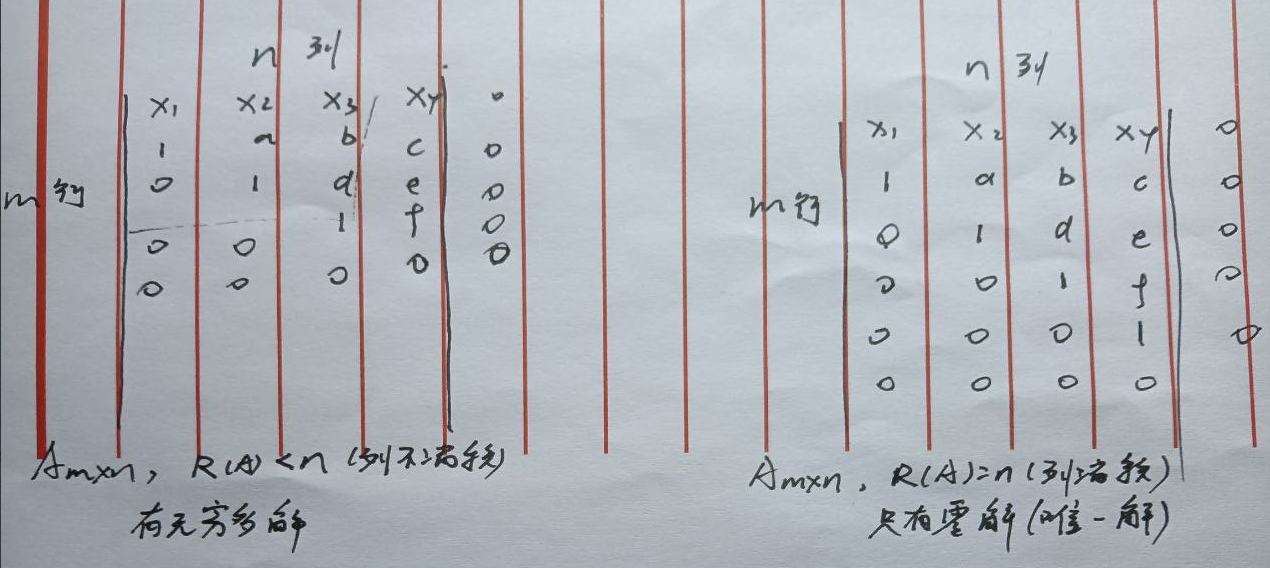 n 列
x₁ x₂ x₃ x₄ 0
1 a b c 0
m 行 0 1 d e 0
0 0 1 f 0
0 0 0 0 0
A m×n, R(A)<n (列不满秩)
有无穷多解
n 列
x₁ x₂ x₃ x₄ 0
1 a b c 0
m 行 0 1 d e 0
0 0 1 f 0
0 0 0 1 0
0 0 0 0
A m×n, R(A)=n (列满秩)
只有零解 (唯一解)